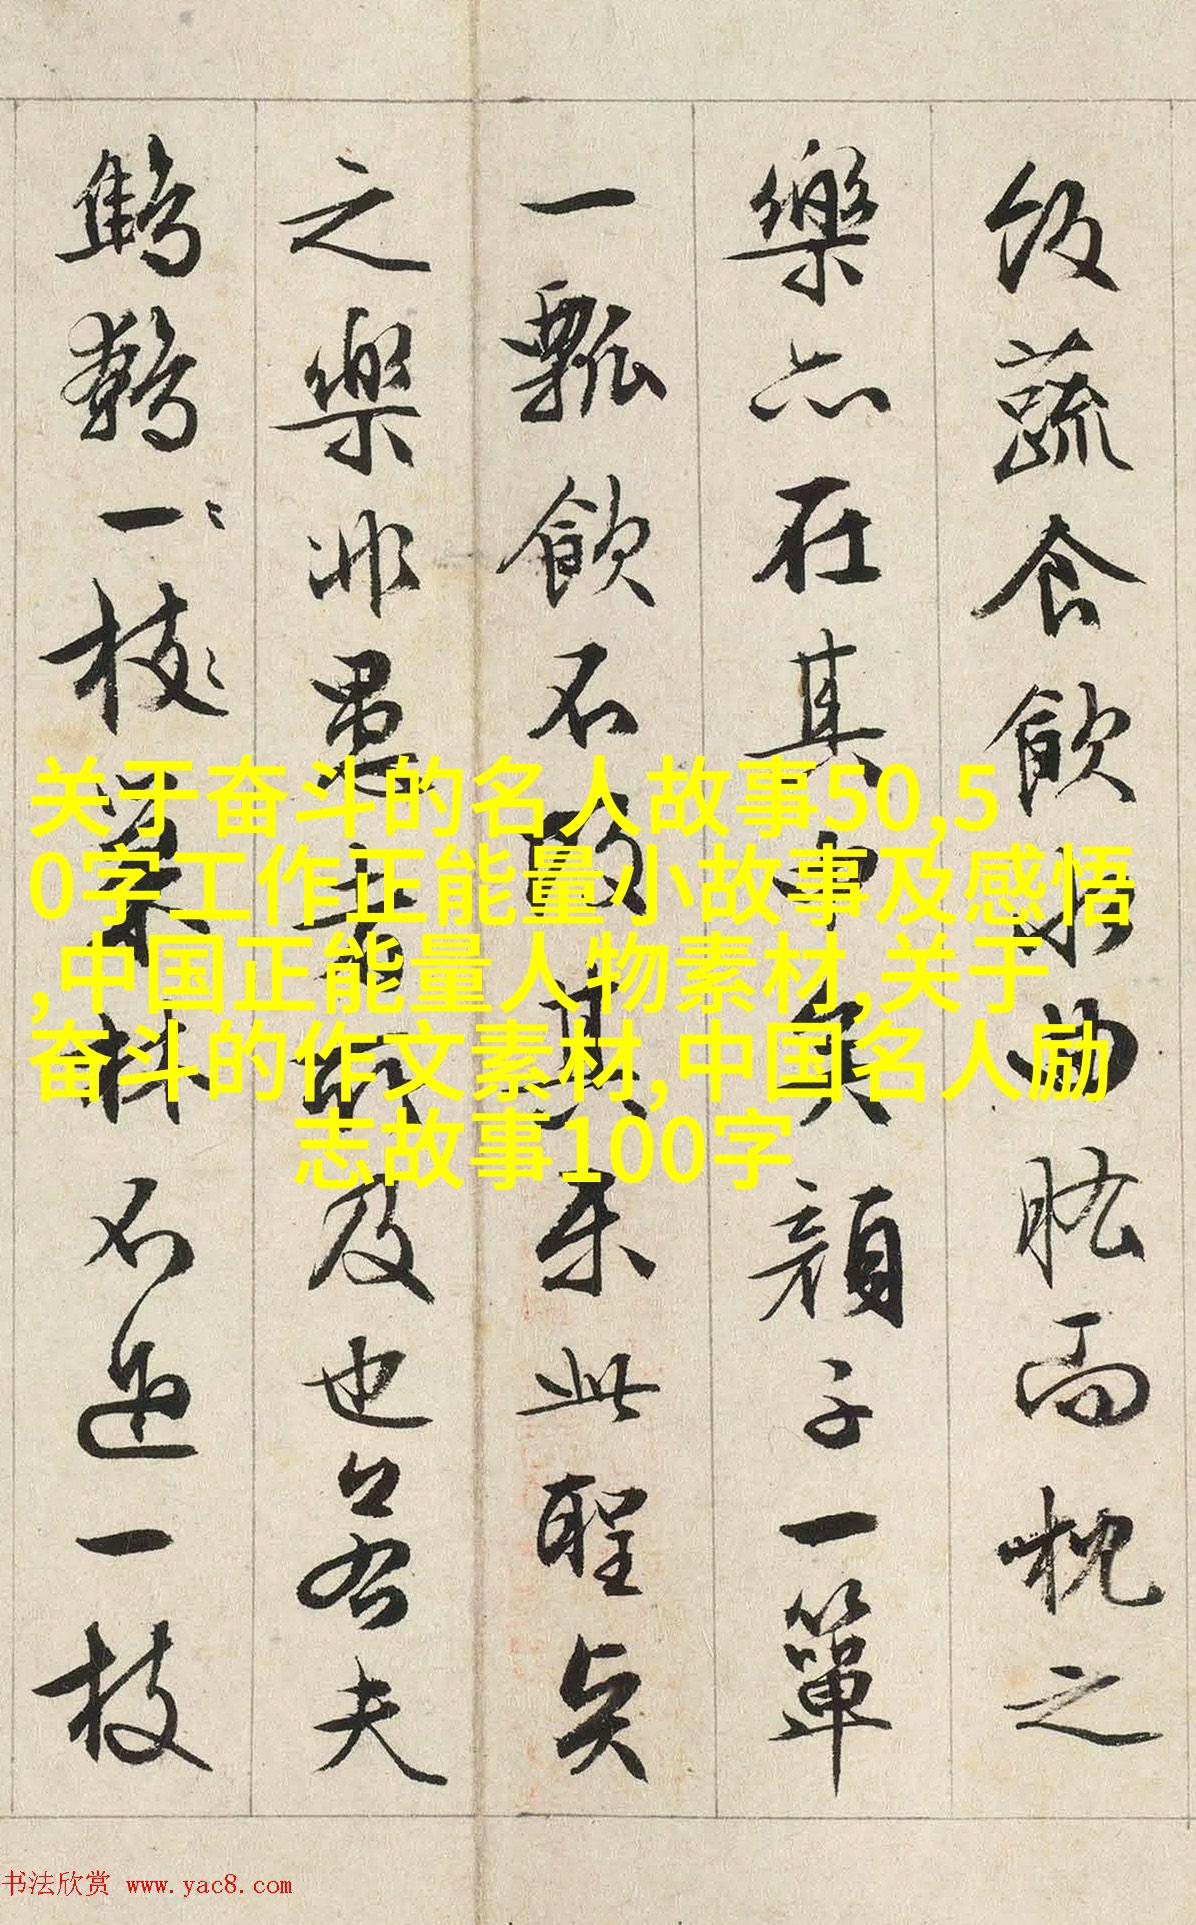 飯蔬食飲水曲肱而枕之
樂亦在其中矣顏子一簞
一瓢飲不改其樂此聖賢
之樂非愚者所及也若夫
鷦鷯一枝巢林不過一枝
关于奋斗的名人故事50,5
0字工作正能量小故事及感悟
,中国正能量人物素材,关于
奋斗的作文素材,中国名人励
志故事100字
书法欣赏 www.yac8.com